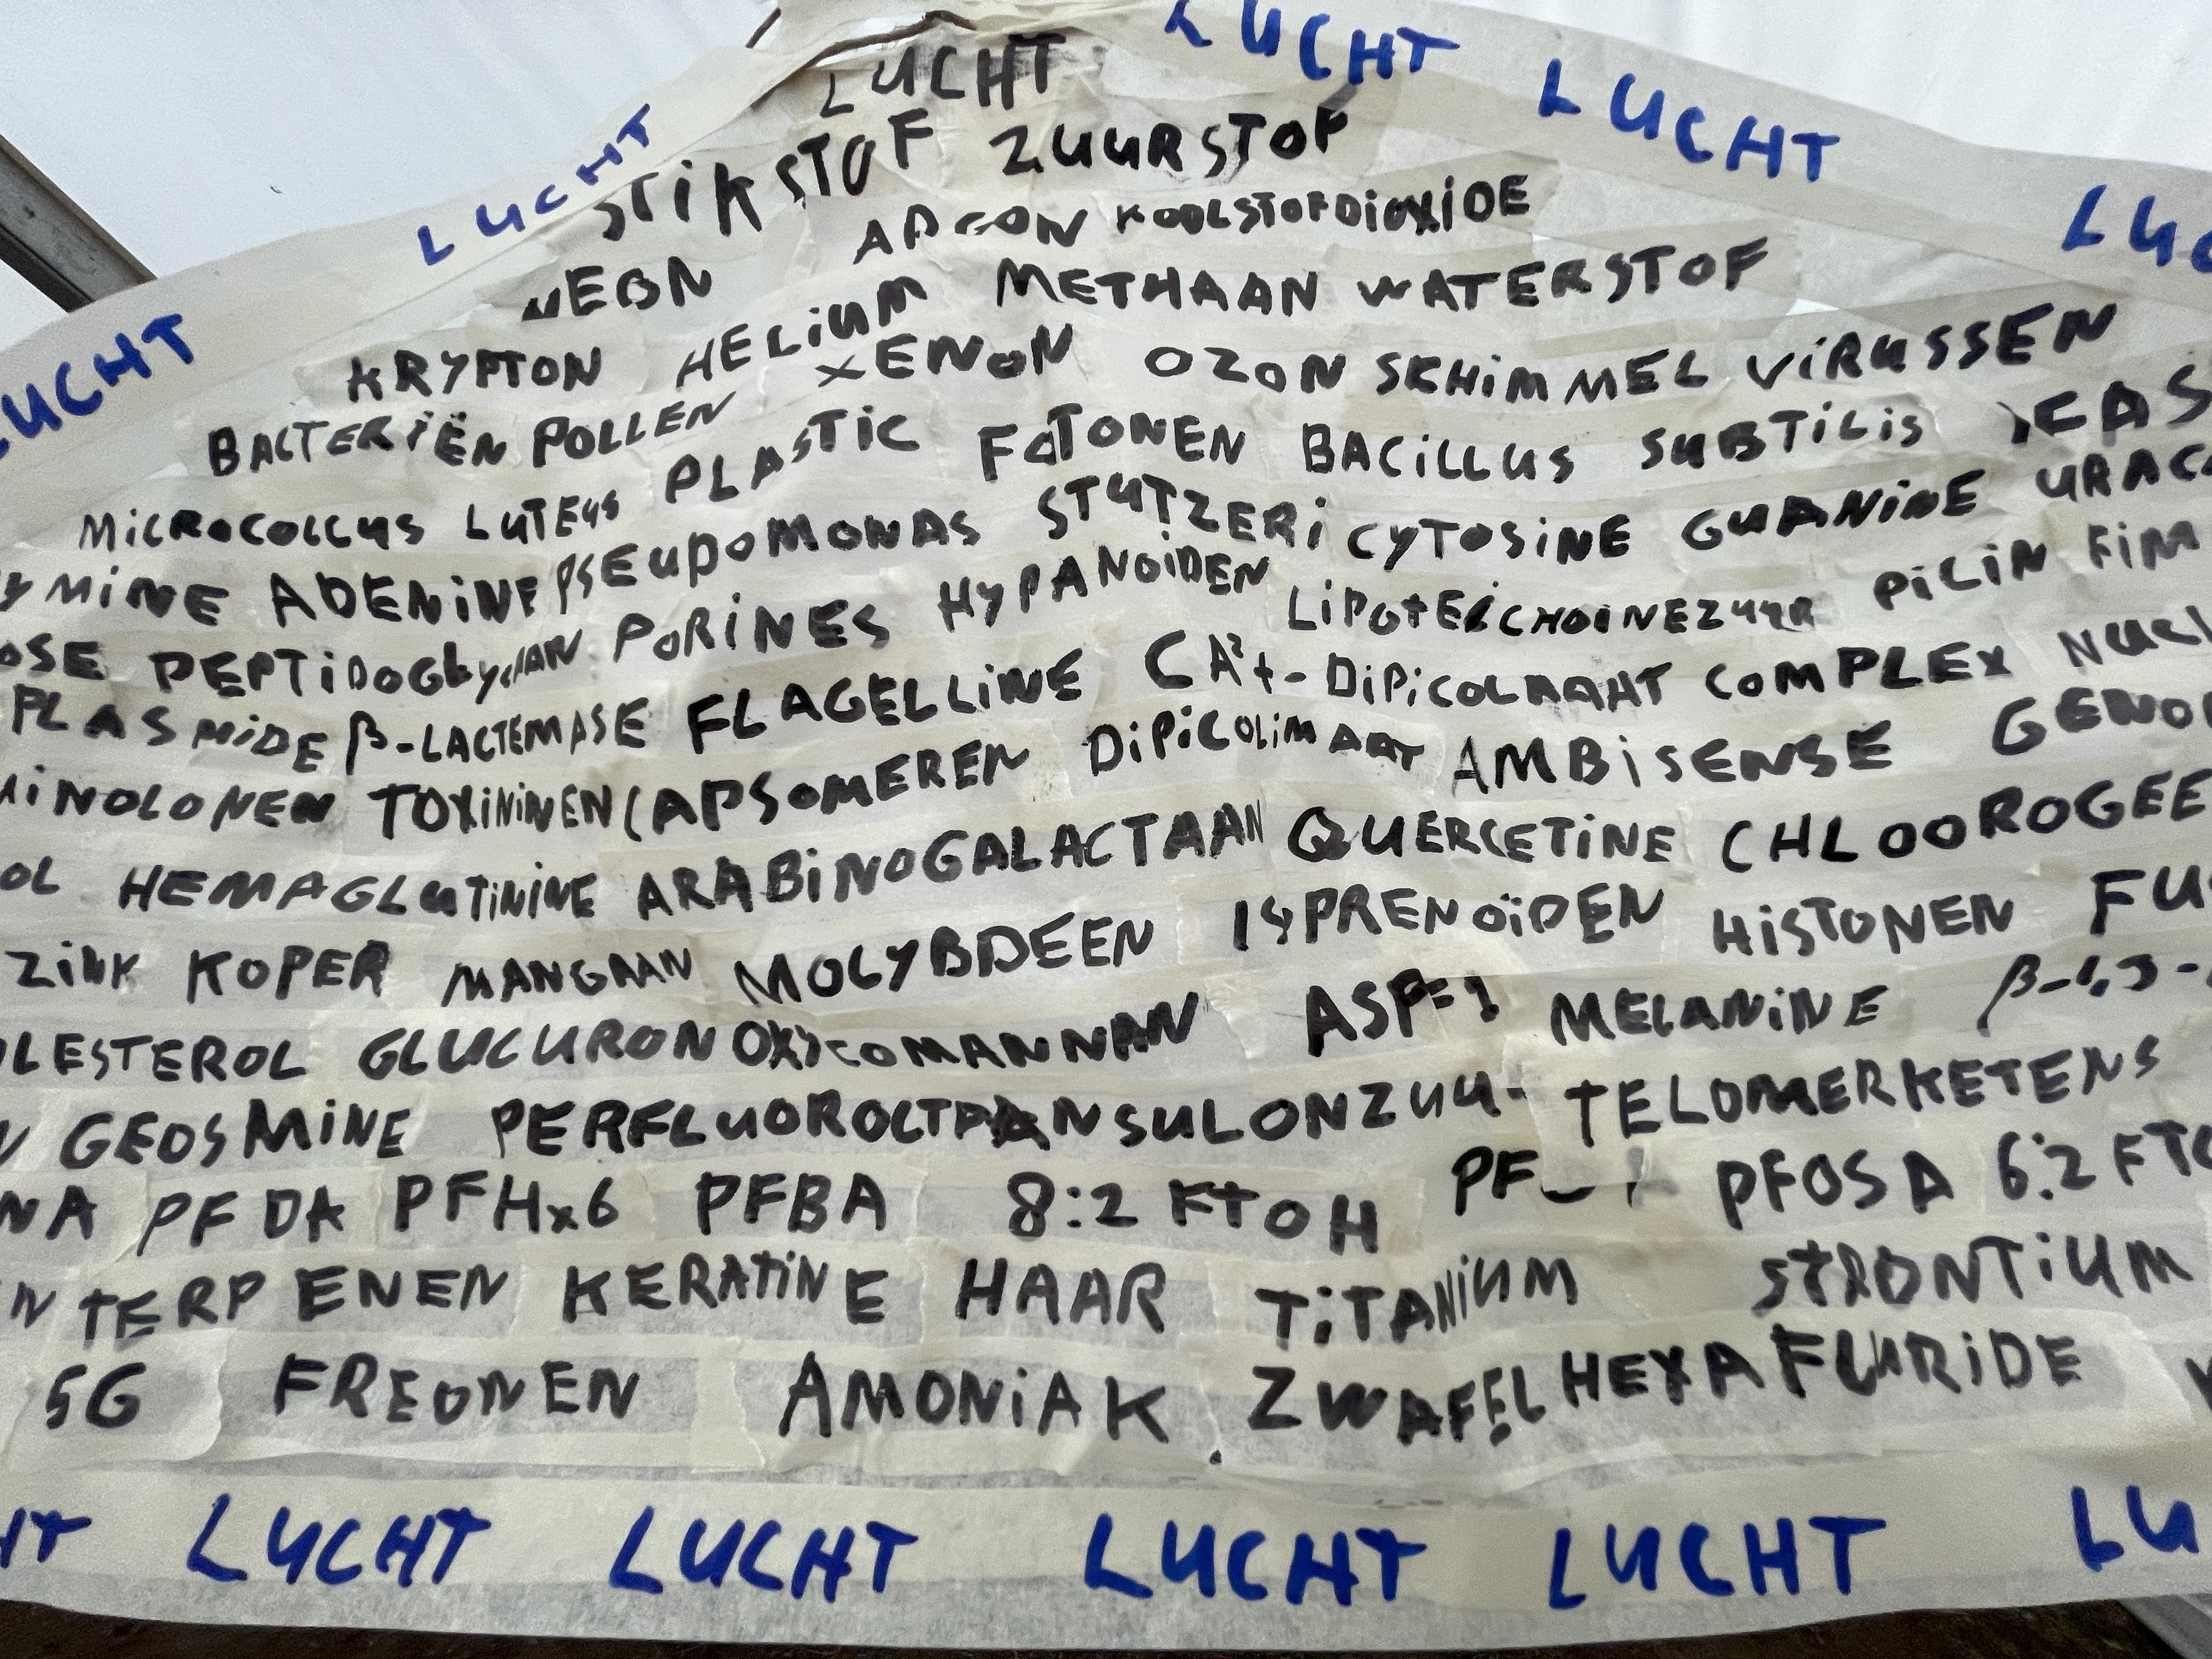 LUCHT
LUCHT LUCHT
LUCHT
STIKSTOF ZUURSTOF
LUCHT
ARGON KOOLSTOFDIOXIDE
NEON
HELIUM METHAAN WATERSTOF
LUCHT
KRYPTON XENON OZON SCHIMMEL VIRUSSEN
BACTERIËN POLLEN PLASTIC FOTONEN BACILLUS SUBTILIS
MICROCOCCUS LUTEUS PSEUDOMONAS STUTZERI CYTOSINE GUANINE URAC
YMINE ADENINE HYPANOÏDEN PILIN FIM
OSE PEPTIDOGLYCAAN PORINES
PLASMIDE β-LACTEMASE FLAGELLINE CA²+- DIPICOLNAAHT COMPLEX NUCL
INOLONEN TOXININEN CAPSOMEREN AMBISENSE GENO
OL HEMAGLUTININE ARABINOGALACTAAN QUERCETINE CHLOOROGEE
ZINK KOPER MANGAAN MOLYBDEEN ISPRENOÏDEN HISTONEN FU
LESTEROL ASP=1 MELANINE β-1,3-
GEOSMINE TELOMERKETENS
NA PFDA PFHx6 PFBA 8:2 FTOH PFOSA 6:2 FTO
N TERPENEN KERATINE HAAR TITANIUM STRONTIUM
5G FREONEN AMONIAK ZWAFELHEXAFLURIDE
HT LUCHT LUCHT LUCHT LUCHT LU